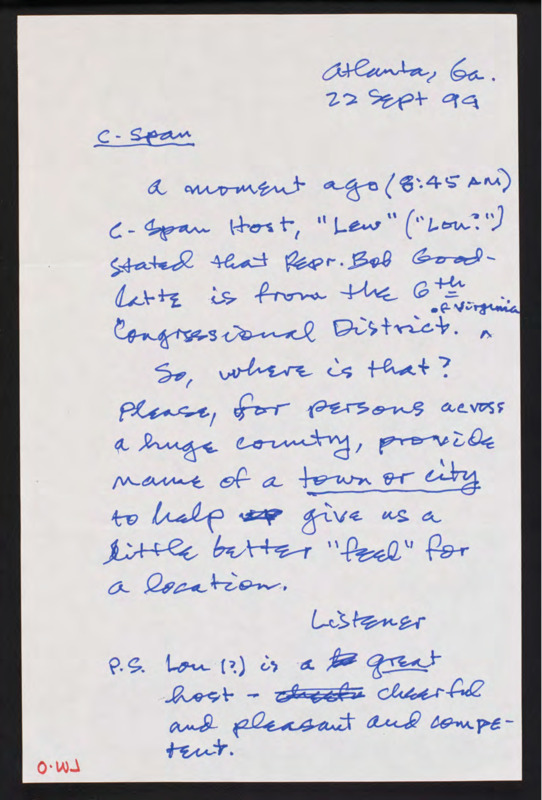 Atlanta, Ga.
22 Sept 99
C-Span
A moment ago (8:45 AM)
C-Span Host, "Lew" ("Lou?")
stated that Repr. Bob Good-
latte is from the 6th
of Virginia
Congressional District. ^
So, where is that?
Please, for persons across
a huge country, provide
name of a town or city
to help give us a
little better "feel" for
a location.
Listener
P.S. Lou (?) is a great
host - cheerful
and pleasant and compe-
tent.
LW-O